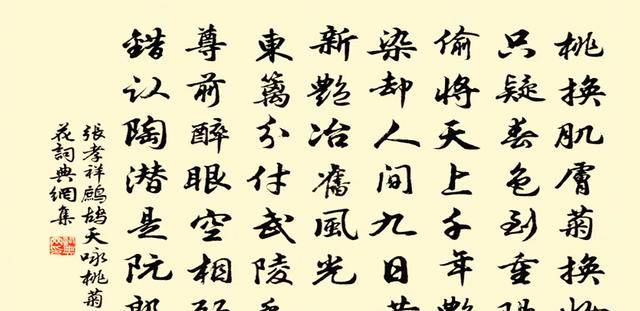 桃換肌膚菊換
只疑春色到重
偷將天上千年
染却人間九日
新艷冶舊風光
東籬分付武陵
尊前醉眼空相
錯认陶潜是阮
張孝祥鷓鴣天咏桃菊
花詞典網集